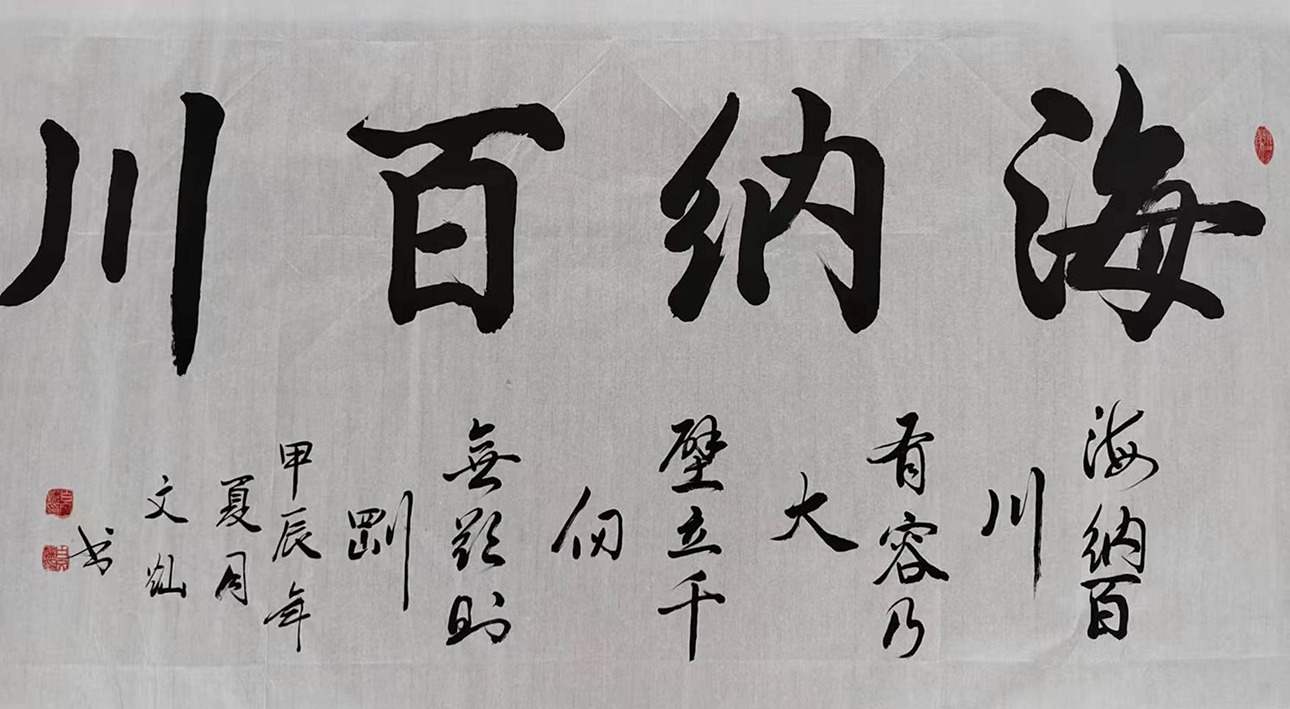 海纳百川
海纳百
川
有容乃
大
壁立千
仞
無欲則
剛
甲辰年
夏月
文灿
书